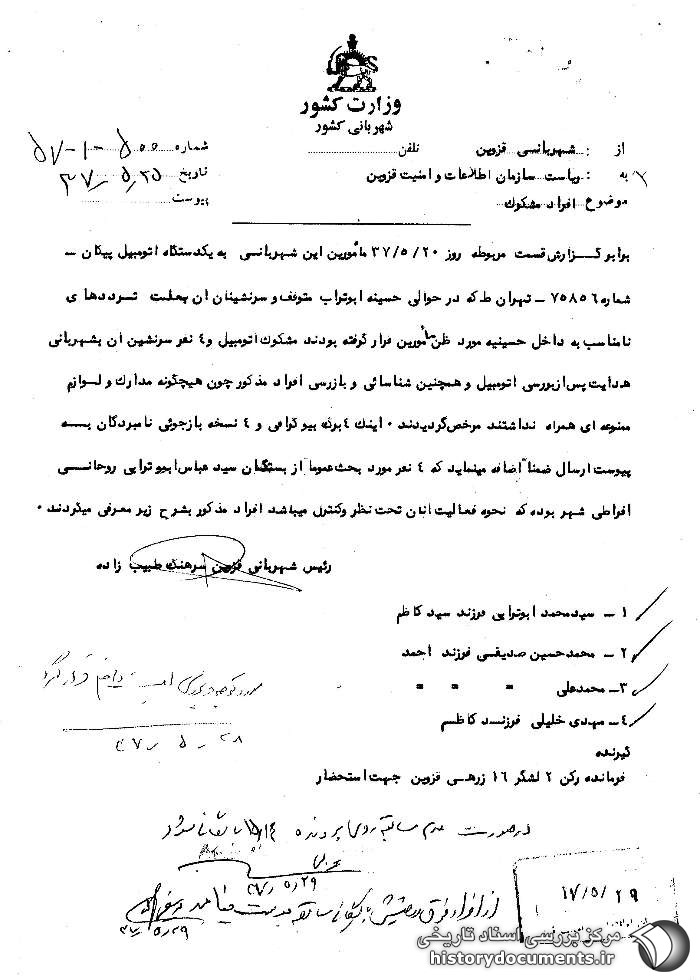 وزارت کشور
شهربانی کشور
از : شهربانی قزوین تلفن
شماره ۵۰۰-۱-۵۷
به : ریاست سازمان اطلاعات و امنیت قزوین
تاریخ ۳۷٫۵٫۲۵
موضوع افراد مشکوک
پیوست
برابر گزارش قسمت مربوطه روز ۳۷/۵/۲۰ مأمورین این شهربانی به یکدستگاه اتومبیل پیکان –
شماره ۷۵۸۵۶ – تهران ط که در حوالی حسینه ابوتراب متوقف و سرنشینان آن بعلت ترددهای
نامناسب به داخل حسینیه مورد ظن مأمورین قرار گرفته بودند مشکوک اتومبیل و ۴ نفر سرنشین آن بشهربانی
هدایت پس از بررسی اتومبیل و همچنین شناسائی و بازرسی افراد مذکور چون هیچگونه مدارک و لوازم
ممنوعه ای همراه نداشتند مرخص گردیدند ۰ اینک ۴ برگه بیوگرافی و ۴ نسخه بازجوئی نامبردگان به
پیوست ارسال ضمناً اضافه مینماید که ۴ نفر مورد بحث عموماً از بستگان سید عباس ابوترابی روحانی
افراطی شهر بوده که نحوه فعالیت آنان تحت نظر و کنترل میباشد افراد مذکور بشرح زیر معرفی میگردند ۰
رئیس شهربانی قزوین سرهنگ طبیب زاده
۱ – سید محمد ابوترابی فرزند سید کاظم
۲ – محمد حسین صدیقی فرزند احمد
۳ – محمد علی " " "
۴ – مهدی خلیلی فرزند کاظم
۳۷٫ ۵ ٫ ۲۸
گیرنده
فرمانده رکن ۲ لشگر ۱۶ زرهی قزوین جهت استحضار
در صورت عدم سابقه روی پرونده
۳۷٫۵٫۲۹
۱۷/۵/۲۹
از افراد فوق
۳۷٫۵٫۲۹
مرکز بررسی اسناد تاریخی
historydocuments.ir